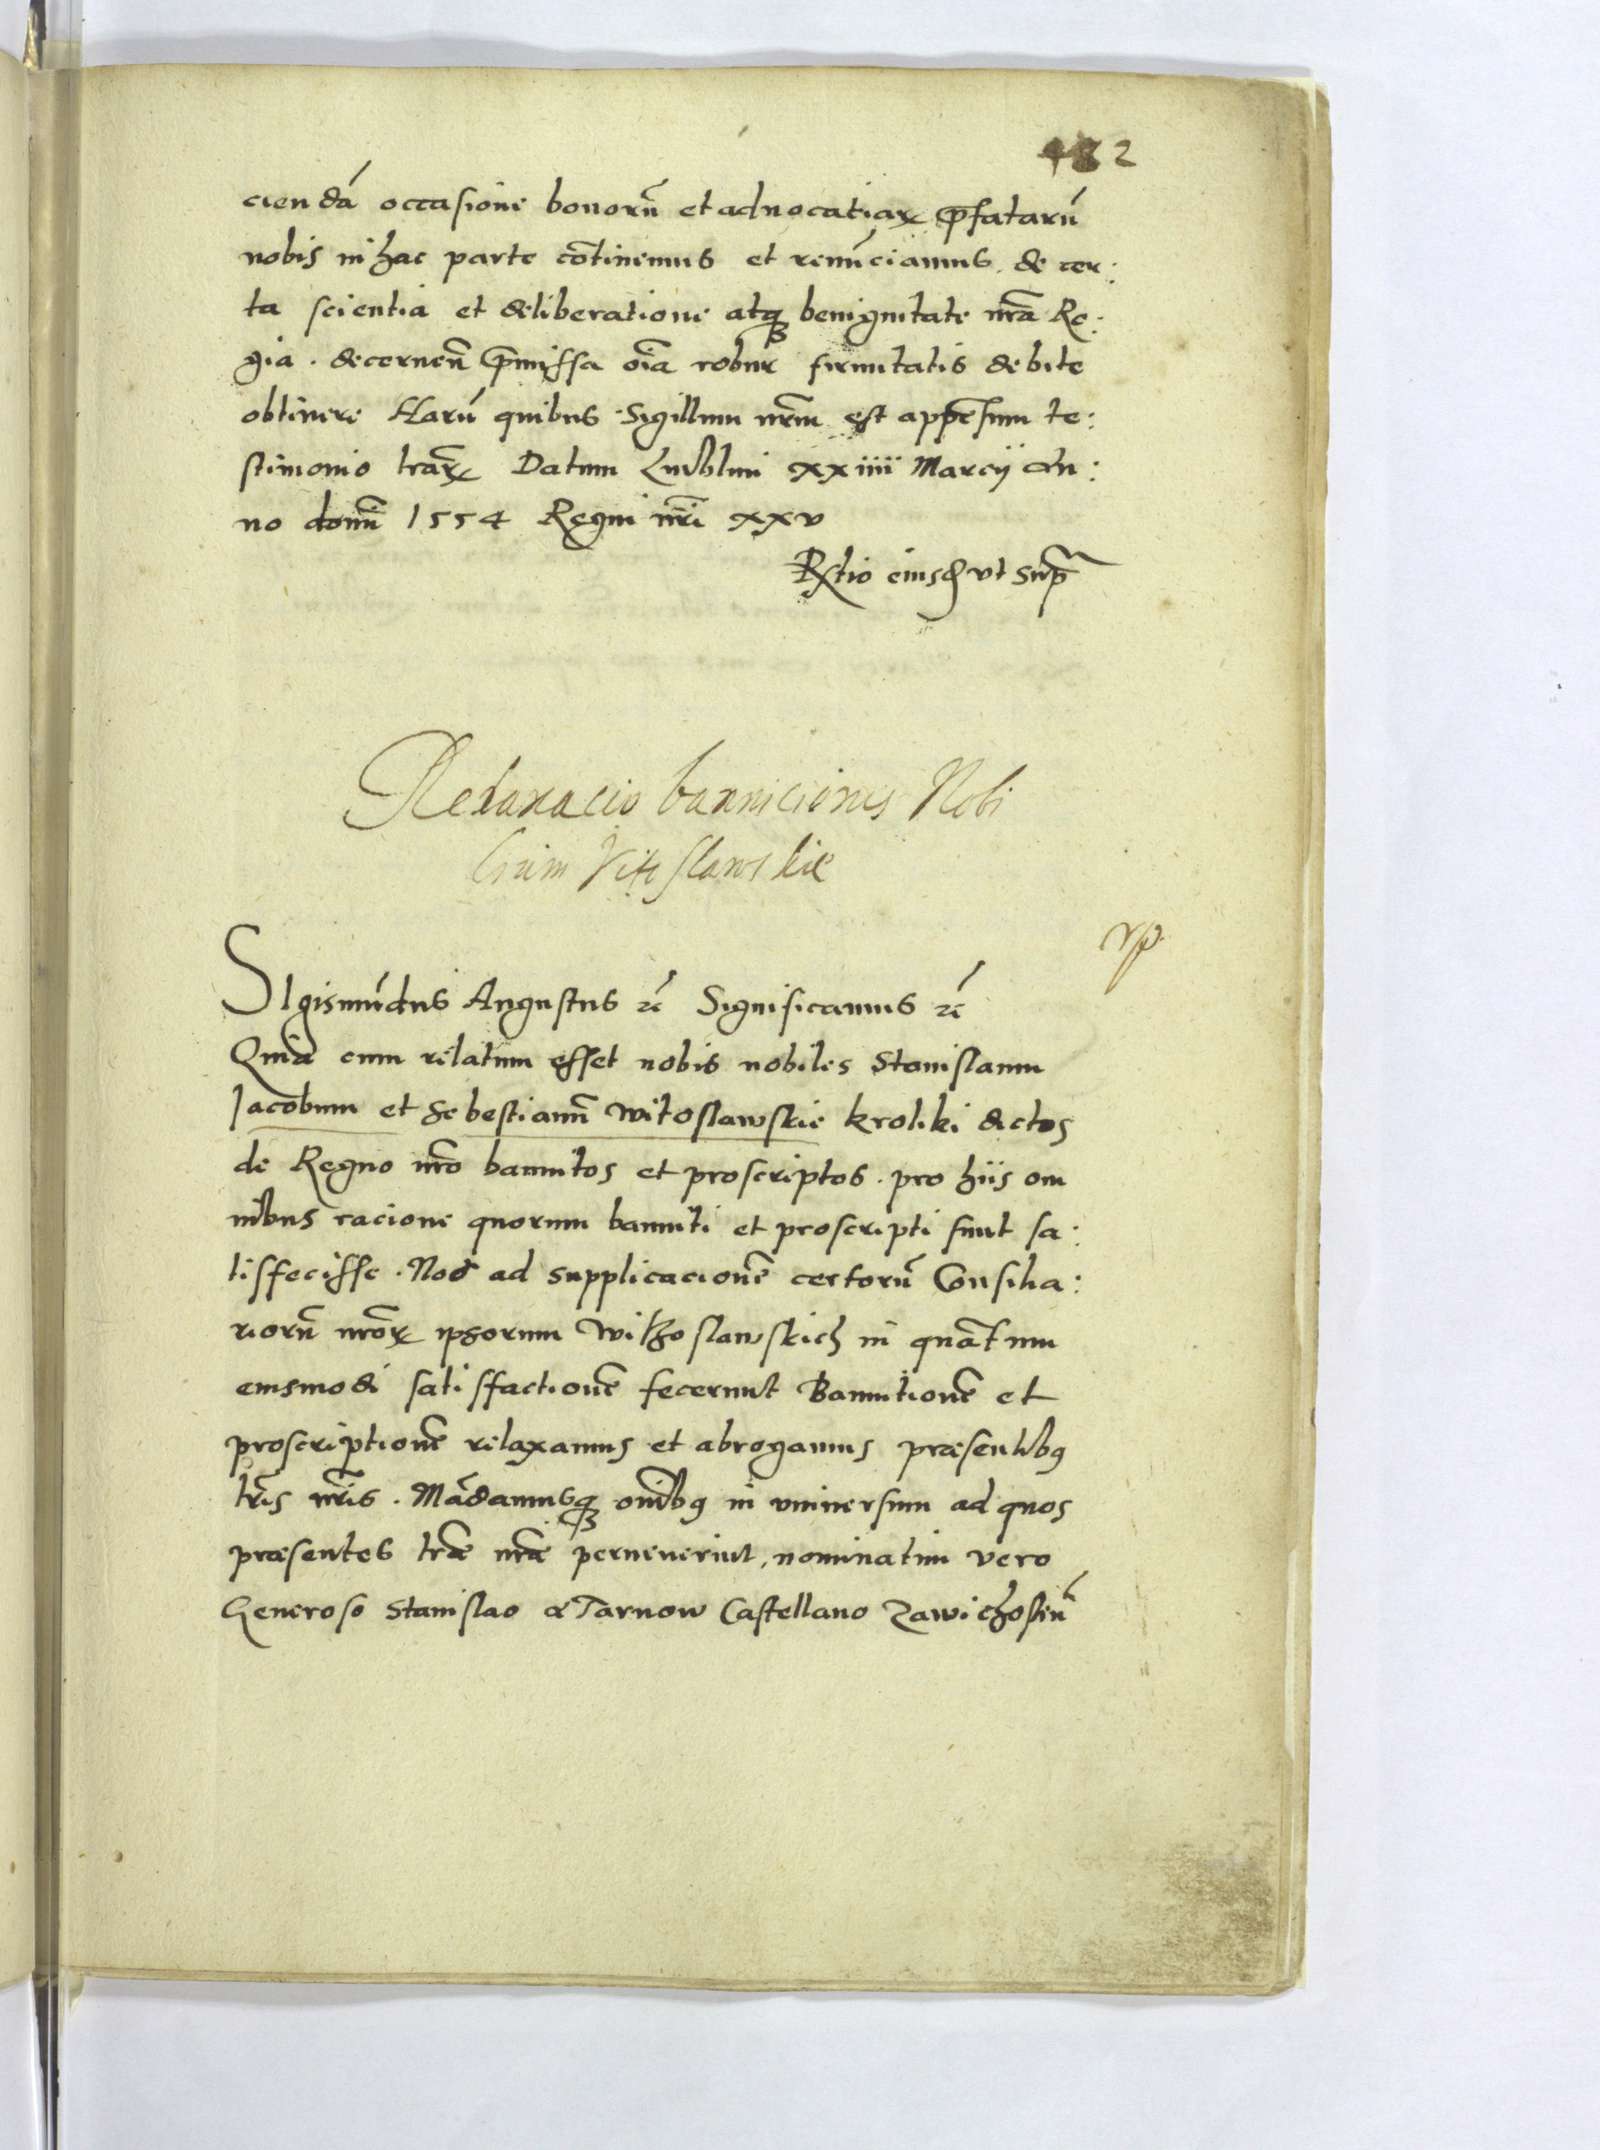 482
ciendā occasione bonorū et aduocatiaꝝ p̄fatarū
nobis in hac parte cōtinemus et renūciamus. de cer:
ta scientia et deliberatione atqꝫ benignitate nr̄a Re:
gia. decerneñ p̄missa oīa robur firmitatis debite
obtinere Harū quibus Sigillum nrm̄ est appēsum te:
stimonio lrāꝝ Datum Lublini xxiiii Marcij An:
no domī 1554 Regni nr̄i xxv
Rtio eiusd ut sup̄
Relaxacio bannicionis Nobi
lium Vitoslawskie
SIgismūdus Augustus ꝛc̄ Significamus ꝛc̄
Quia cum relatum esset nobis nobiles Stanislaum
Jacobum et Sebestianū Witoslawskie Kroliki dictos
de Regno nr̄o bannitos et proscriptos. pro hiis om
nibus racione quorum banniti et proscripti sunt sa:
tisfecisse. Nos ad supplicacionē certorū Consilia:
riorū nr̄oꝝ ipsorum Withoslawskich in quātum
eiusmodi satisfactionē fecerunt Bannitionē et
proscriptionē relaxamus et abrogamus præsentibꝯ
lr̄is nr̄is. Mādamusqꝫ omībꝯ in vniuersum ad quos
præsentes lr̄æ nr̄æ peruenerint, nominatim vero
Generoso Stanislao a Tarnow Castellano Zawichosteñ